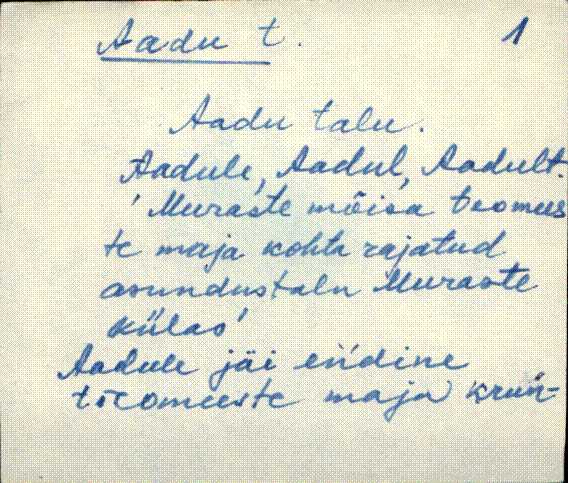 Aadu t. 1
Aadu talu.
Aadule, Aadul, Aadult.
'Muraste mõisa toomees
te maja kohta rajatud
asundustalu Muraste
külas'
Aadule jäi endine
töomeeste maja krun-